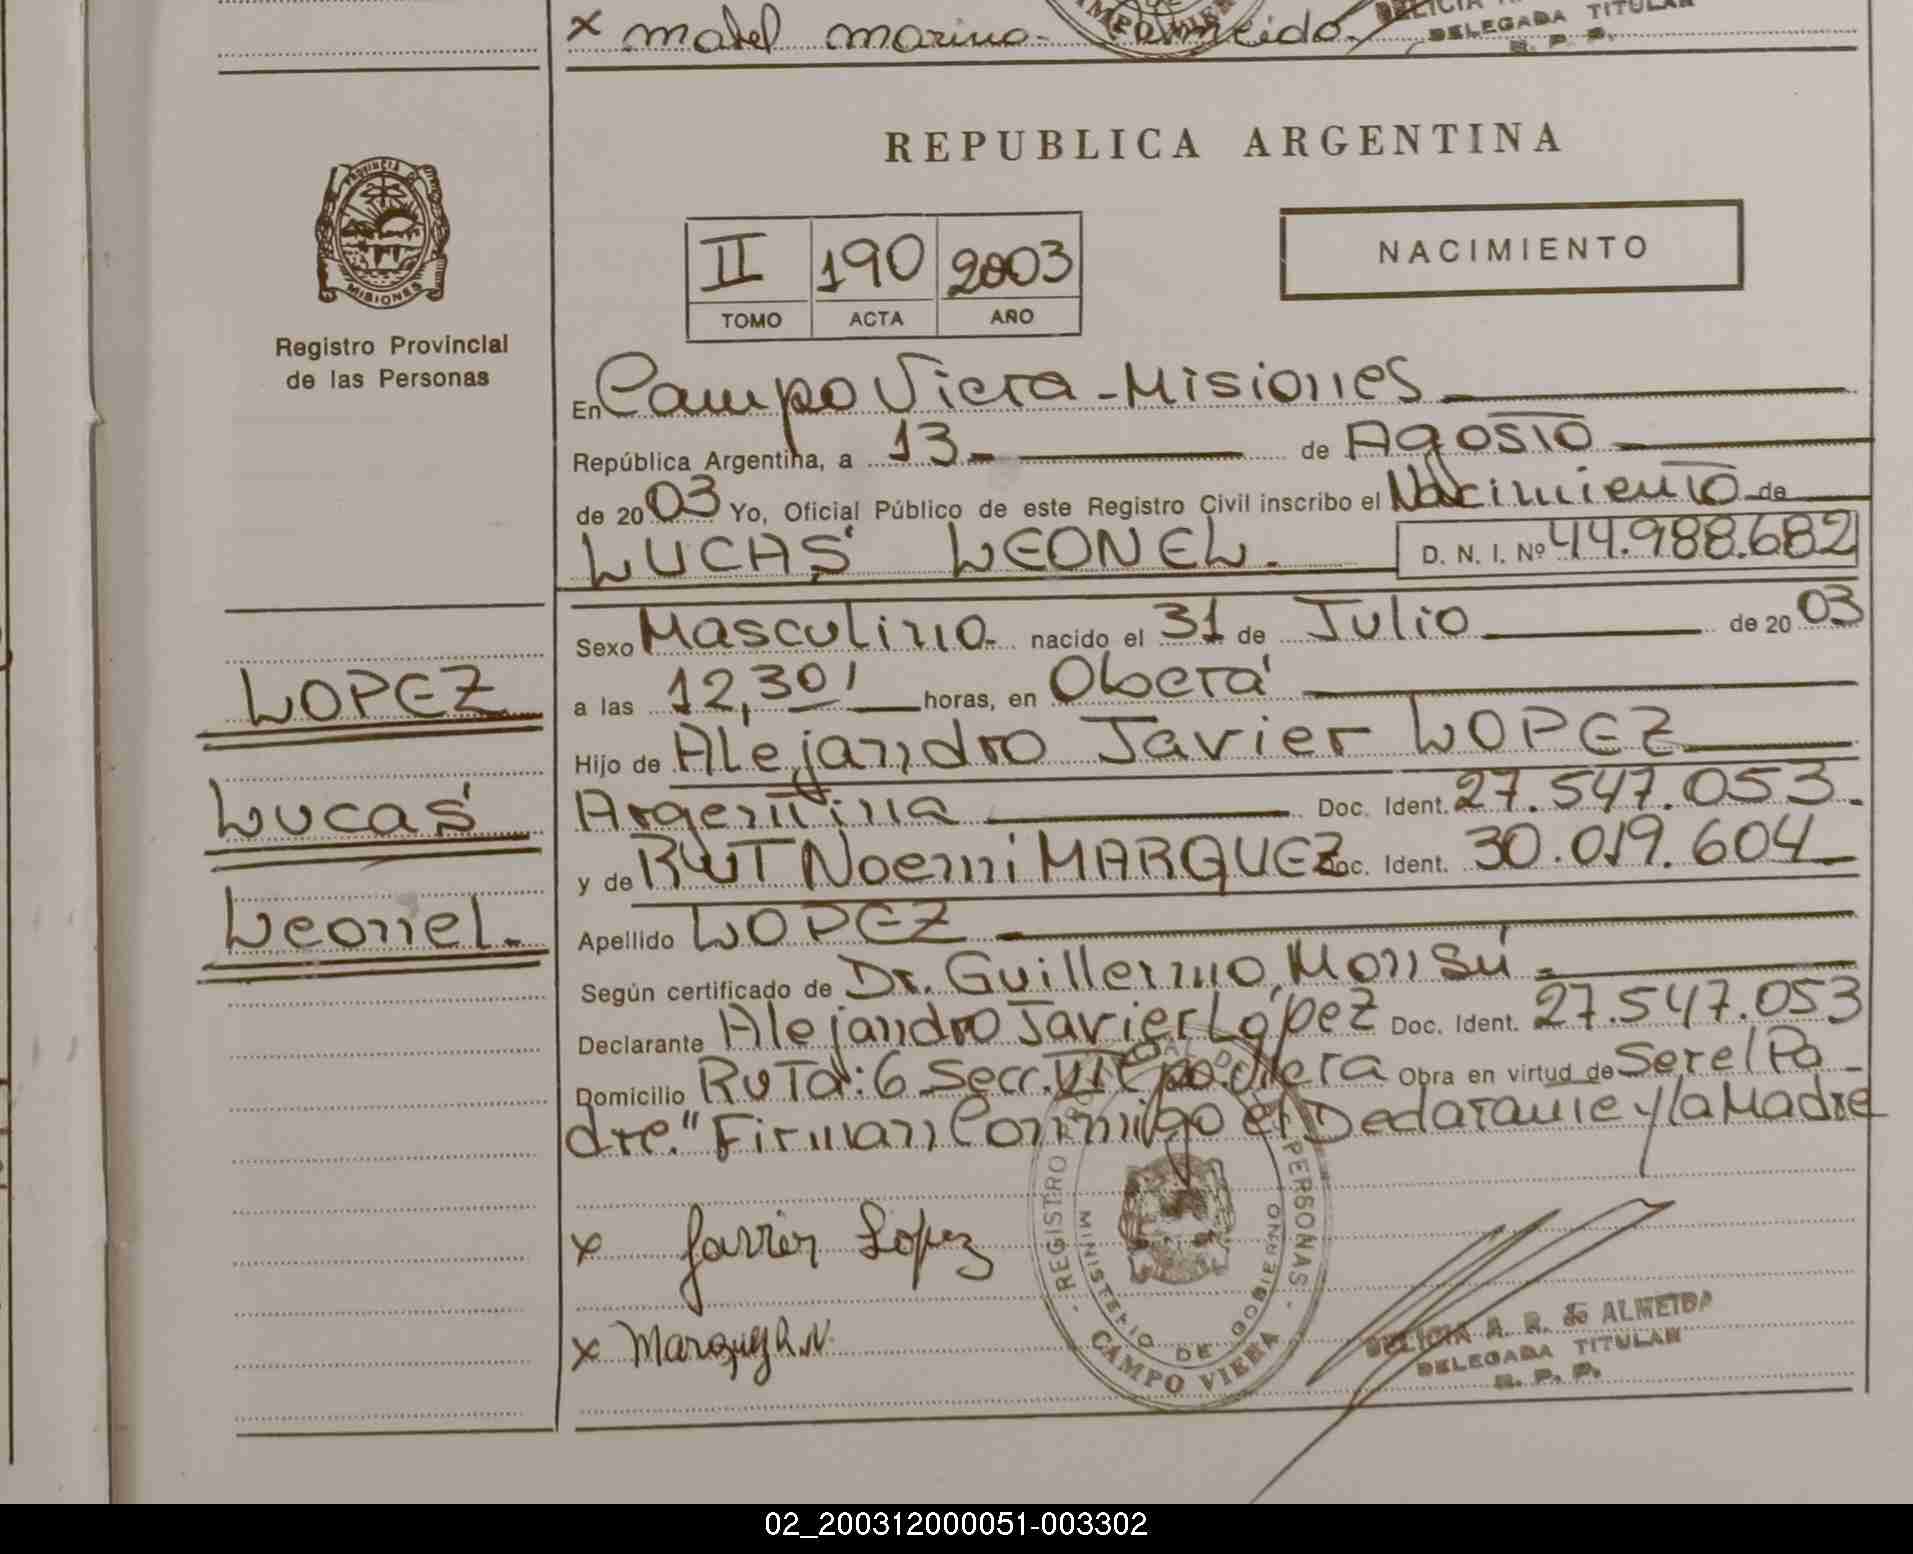 x Mabel Marino.
DELEGADA TITULAR
R. P. P.
REPUBLICA ARGENTINA
PROVINCIA DE
MISIONES
II 190 2003
TOMO ACTA AÑO
NACIMIENTO
Registro Provincial
de las Personas
En Campo Viera - Misiones
República Argentina, a 13 de Agosto
de 2003 Yo, Oficial Público de este Registro Civil inscribo el Nacimiento de
LUCAS LEONEL. D. N. I. Nº 44.988.682
Sexo Masculino. nacido el 31 de Julio de 2003
a las 12,30' horas, en Oberá
Hijo de Alejandro Javier LOPEZ
Argentina Doc. Ident. 27.547.053.
y de RUT Noemi MARQUEZ Doc. Ident. 30.019.604
Apellido LOPEZ
Según certificado de Dr. Guillermo, Monsú
Declarante Alejandro Javier López Doc. Ident. 27.547.053
Domicilio Ruta: 6 Secc. VII Cpo. Viera Obra en virtud de Ser el Pa-
dre." Firman Conmigo el Declarante y la Madre
LOPEZ
Lucas
Leonel.
x Javier Lopez
x Marquez R.N.
REGISTRO PROVINCIAL DE LAS PERSONAS
MINISTERIO DE GOBIERNO
CAMPO VIERA
DELICIA A. R. de ALMEIDA
DELEGADA TITULAR
R. P. P.
02_200312000051-003302